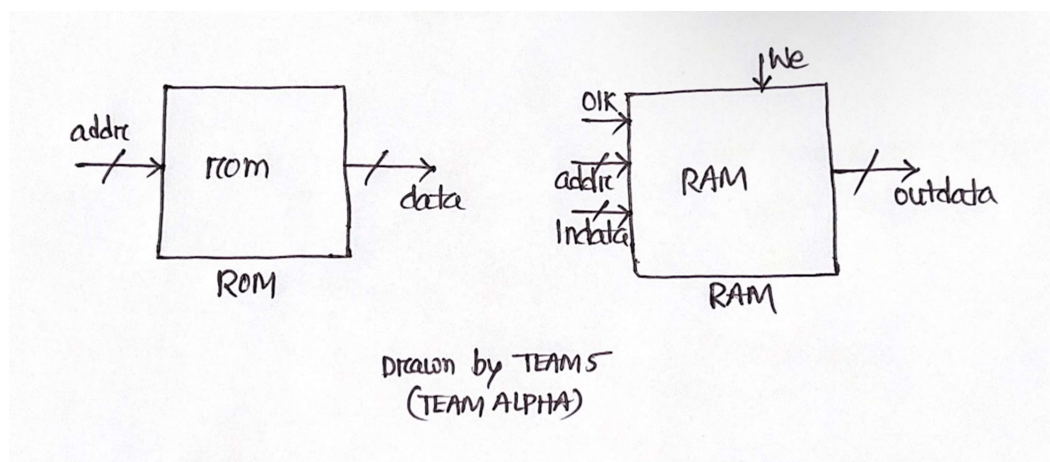 addr
rom
data
ROM
We
Clk
addr
Indata
RAM
outdata
RAM
Drawn by TEAM 5
(TEAM ALPHA)